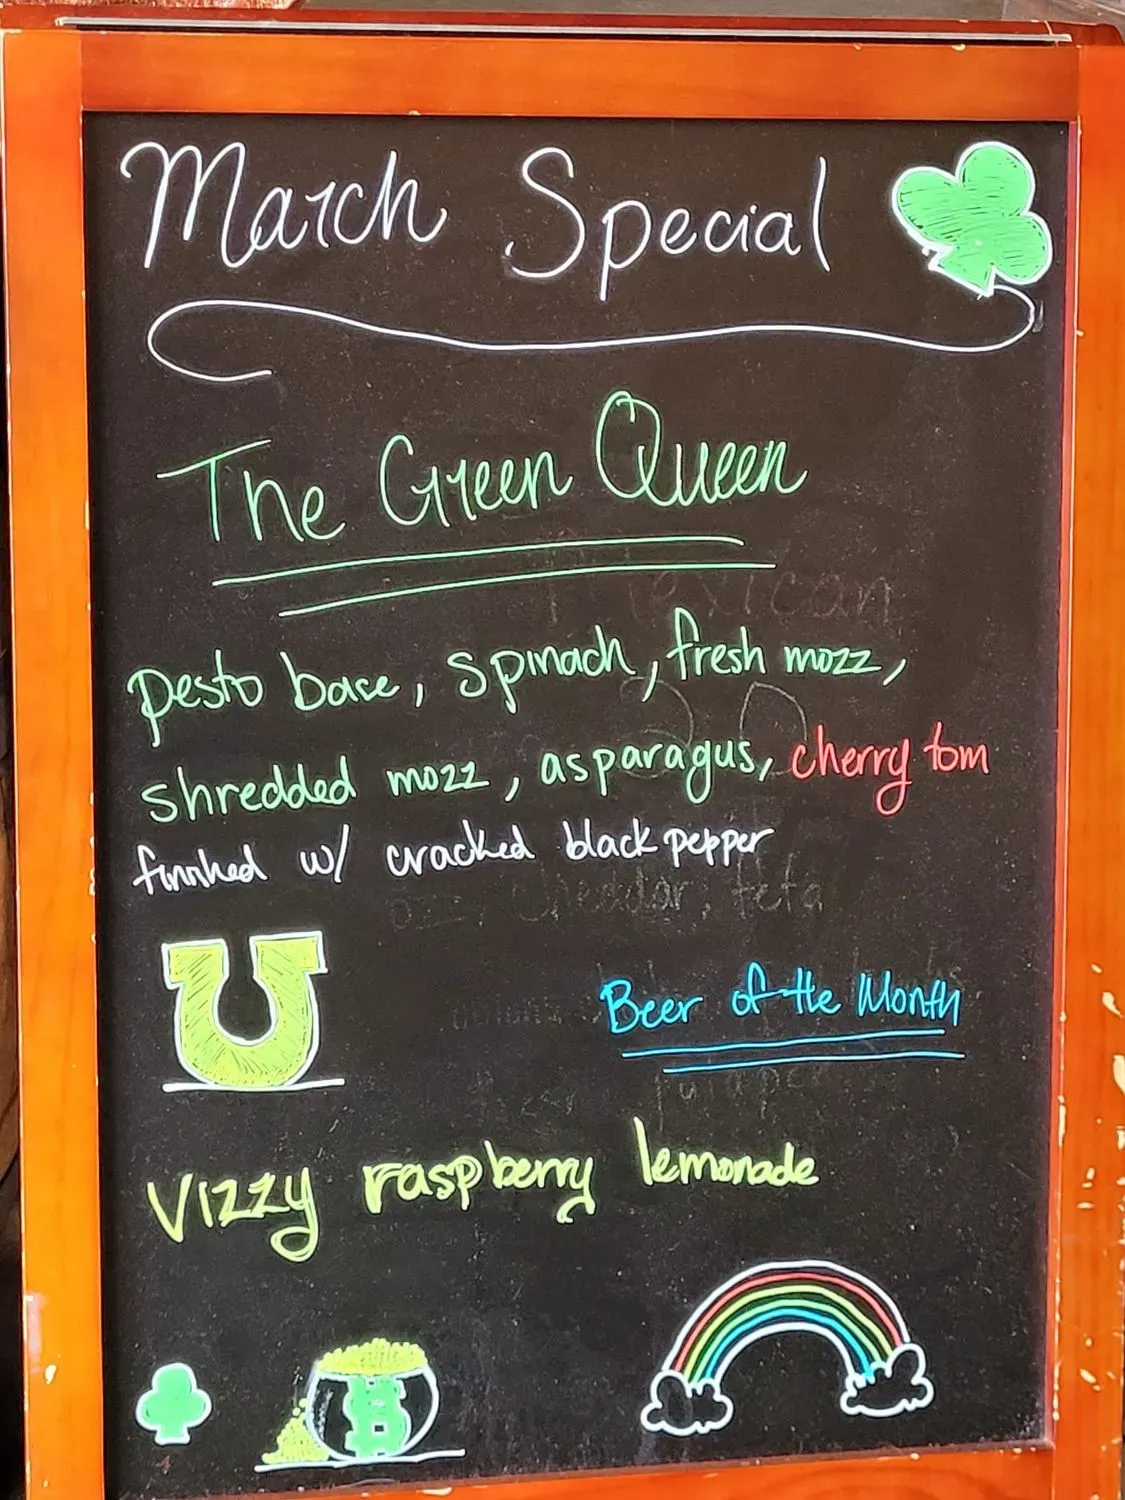 March Special
The Green Queen
Mexican
pesto base, spinach, fresh mozz,
shredded mozz, asparagus, cherry tom
finished w/ cracked black pepper
cheddar, feta
Beer of the Month
Vizzy raspberry lemonade